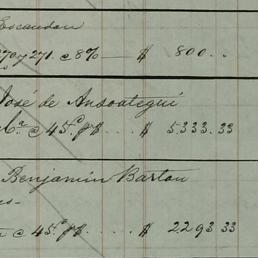 Escandon
270 y 271. c 8% — $ 800..
José de Ansoategui
c 45. c pf.... $ 5.333.33
Benjamin Barton
es-
c 45. c pf..... $ 2293 33